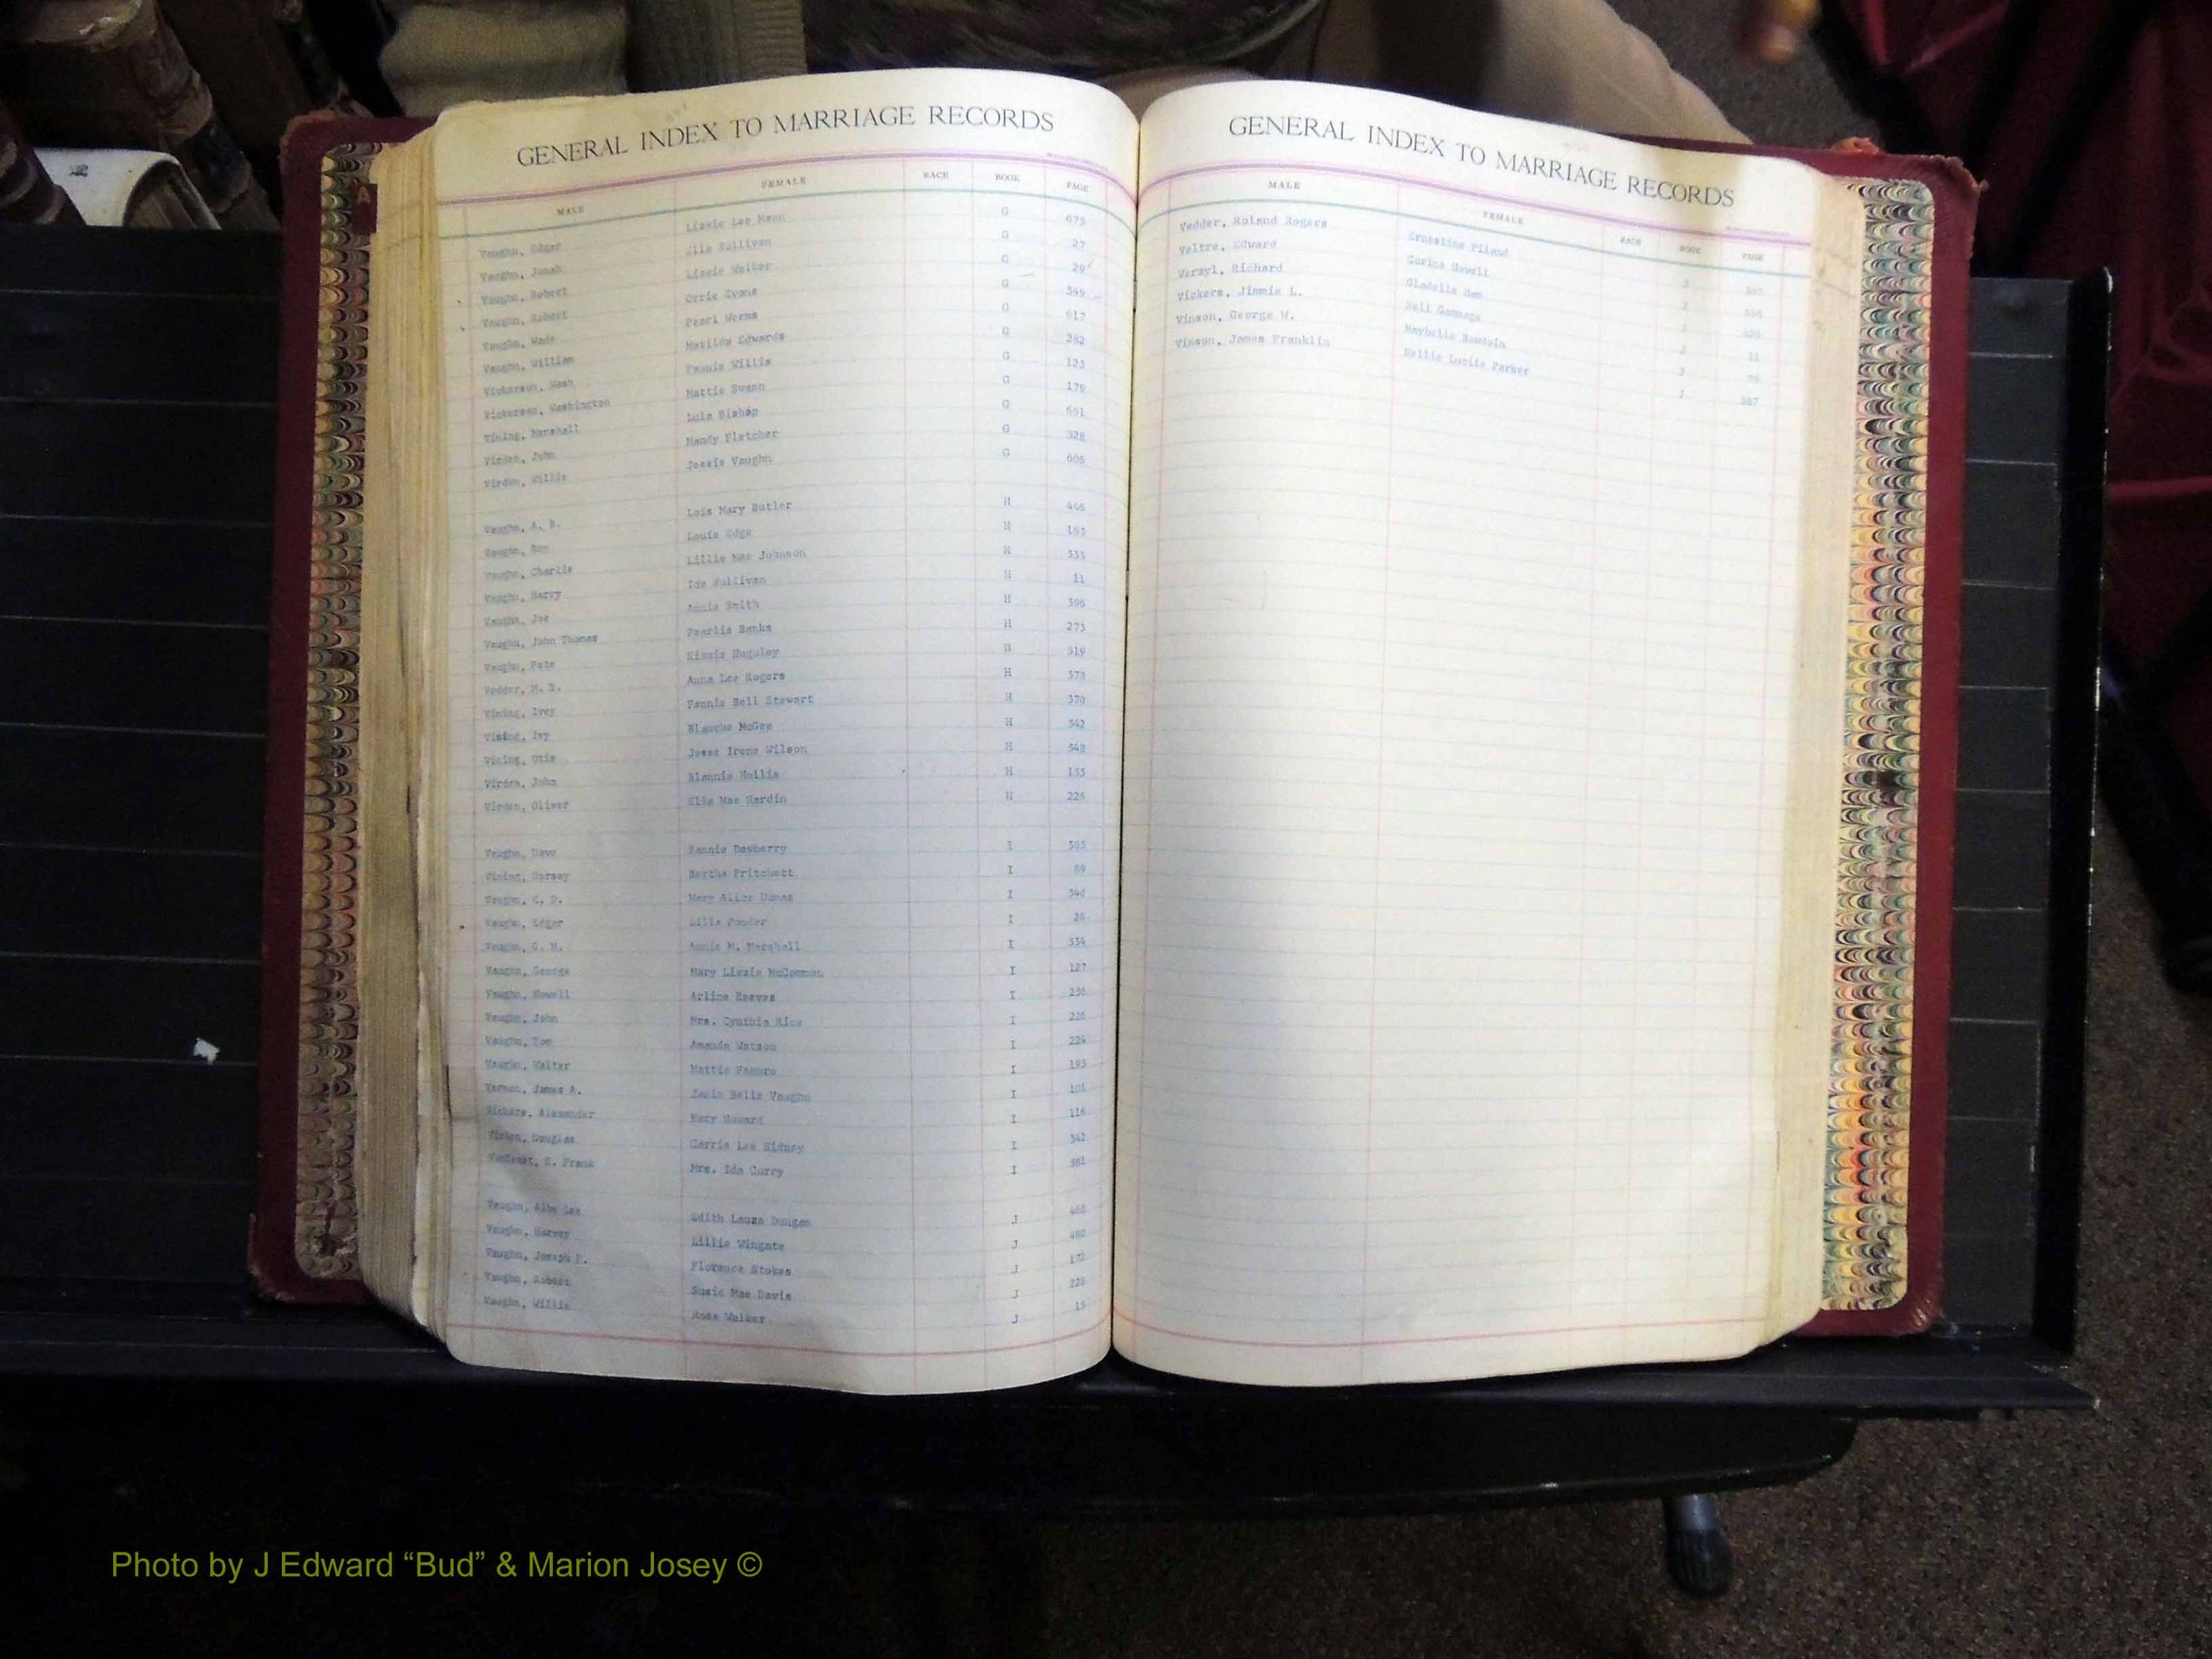 GENERAL INDEX TO MARRIAGE RECORDS
MALE FEMALE RACE BOOK PAGE
Vaughn, Edgar Lizzie Lee Mann G 675
Vaughn, Jonah Ella Sullivan G 27
Vaughn, Robert Lizzie Walker G 29
Vaughn, Robert Orrie Evans G 349
Vaughn, Wade Pearl Weems G 617
Vaughn, William Matilda Edwards G 282
Vickerson, Wash Fannie Willis G 125
Vickerson, Washington Mattie Swann G 179
Vining, Marshall Lula Bishop G 651
Virden, John Mandy Fletcher G 328
Virden, Willis Jessie Vaughn G 606
Vaughn, A. B. Lois Mary Butler H 446
Vaughn, Ben Louis Edge H 165
Vaughn, Charlie Lillie Mae Johnson H 335
Vaughn, Harry Ida Sullivan H 11
Vaughn, Joe Annie Smith H 396
Vaughn, John Thomas Pearlie Banks H 273
Vaughn, Pete Kizzie Huguley H 519
Vedder, M. E. Anna Lee Rogers H 378
Vining, Ivey Fannie Bell Stewart H 370
Vining, Ivy Blanche McGee H 342
Vining, Otis Jesse Irene Wilson H 548
Virden, John Blannie Hollis H 153
Virden, Oliver Ella Mae Hardin H 226
Vaughn, Dave Fannie Dewberry I 303
Vining, Dorsey Bertha Pritchett I 89
Vaughn, C. D. Mary Alice I 340
Vaughn, Edgar Lilla Ponder I 26
Vaughn, G. M. Annie M. Marshall I 334
Vaughn, George Mary Lizzie McCommon I 127
Vaughn, Howell Arline Reeves I 236
Vaughn, John Mrs. Cynthia Rice I 226
Vaughn, Tom Amanda Watson I 224
Vaughn, Walter Mattie Fambro I 193
Vernon, James A. Janie Belle Vaughn I 101
Vickers, Alexander Mary Howard I 116
Virden, Douglas Carrie Lee Sidney I 342
S. Frank Mrs. Ida Curry I 381
Vaughn, Lee Edith Laura Dungan J 468
Vaughn, Harvey Lillie Wingate J 480
Vaughn, Joseph Florence Stokes J 172
Vaughn, Robert Susie Mae Davis J 228
Vaughn, Willie Rosa Walker J 15
GENERAL INDEX TO MARRIAGE RECORDS
MALE FEMALE RACE BOOK PAGE
Vedder, Roland Rogers Ernestine Piland J
Veltre, Edward Corine Howell J
Verzyl, Richard Gladelle J
Vickers, Jimmie L. Nell Gammage J 11
Vinson, George W. Maybelle Bowdoin J 79
Vinson, James Franklin Nellie Lucile Parker J 387
Photo by J Edward “Bud” & Marion Josey ©